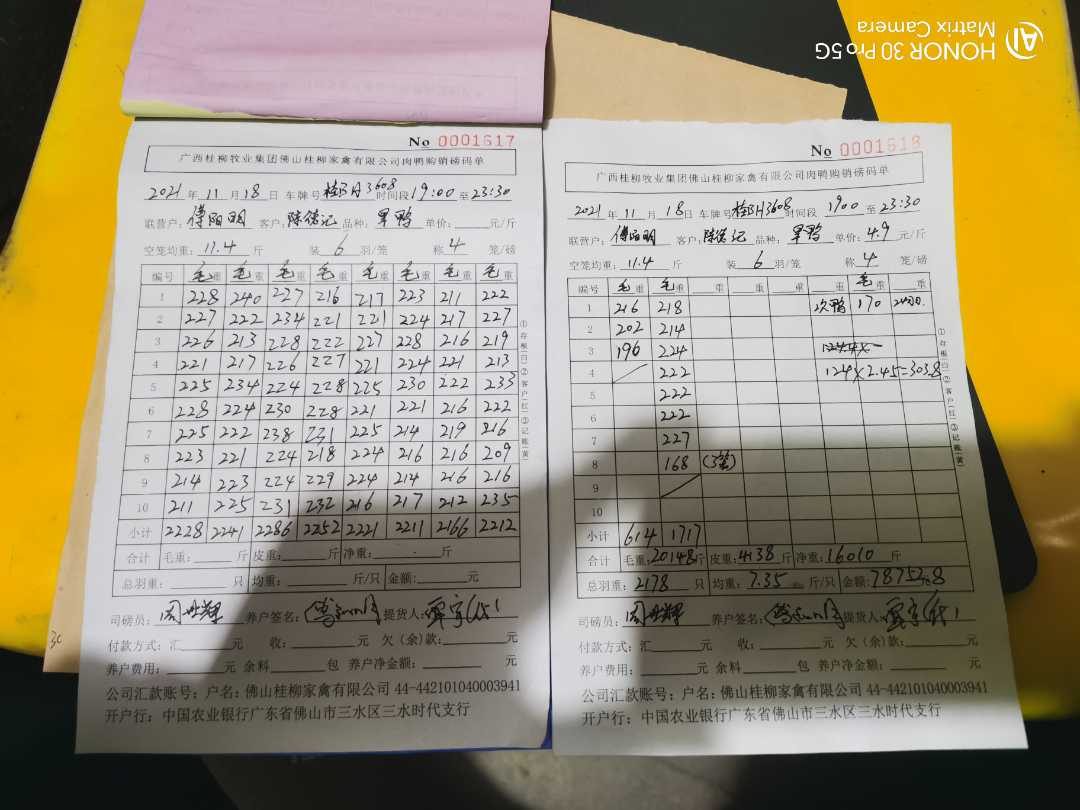 HONOR 30 Pro 5G
Matrix Camera
No 0001617
广西桂柳牧业集团佛山桂柳家禽有限公司肉鸭购销磅码单
2021年11月18日 车牌号 桂BH3608 时间段 19:00 至 23:30
联营户： 客户：陈德记 品种：单鸭 单价： 元/斤
空笼均重：11.4 斤 装 6 羽/笼 称 4 笼/磅
编号 毛重 毛重 毛重 毛重 毛重 毛重 毛重 毛重
1 228 240 227 216 217 223 211 222
2 227 222 234 221 221 224 217 227
3 226 213 228 222 227 228 216 219
4 221 217 226 227 221 224 221 213
5 225 234 224 228 225 230 222 233
6 228 224 230 228 221 221 216 222
7 225 222 238 231 225 214 219 216
8 223 221 224 218 224 216 216 209
9 214 223 224 229 224 214 216 216
10 211 225 231 232 216 217 212 235
小计 2228 2241 2286 2252 2221 2211 2166 2212
合计 毛重： 斤 皮重： 斤 净重： 斤
总羽重： 只 均重： 斤/只 金额： 元
司磅员： 养户签名： 提货人：
付款方式：汇 元 收： 元 欠（余）款： 元
养户费用： 元 余料 包 养户净金额： 元
公司汇款账号：户名：佛山桂柳家禽有限公司 44-442101040003941
开户行：中国农业银行广东省佛山市三水区三水时代支行
①存根（白）②客户（红）③记账（黄）
No 0001618
广西桂柳牧业集团佛山桂柳家禽有限公司肉鸭购销磅码单
2021年11月18日 车牌号 桂BH3608 时间段 1900 至 23:30
联营户： 客户：陈德记 品种：单鸭 单价：4.9 元/斤
空笼均重：11.4 斤 装 6 羽/笼 称 4 笼/磅
编号 毛重 毛重 重 重 重 重 毛重 重
1 216 218 次鸭 170
2 202 214
3 196 224
4 222 124×2.45=303.8
5 222
6 222
7 227
8 168 (3笼)
9
10
小计 614 1717
合计 毛重：20148斤 皮重：4138 斤 净重：16010 斤
总羽重：2178 只 均重：7.35 斤/只 金额：78752.8
司磅员： 养户签名： 提货人：
付款方式：汇 元 收： 元 欠（余）款： 元
养户费用： 元 余料 包 养户净金额： 元
公司汇款账号：户名：佛山桂柳家禽有限公司 44-442101040003941
开户行：中国农业银行广东省佛山市三水区三水时代支行
①存根（白）②客户（红）③记账（黄）